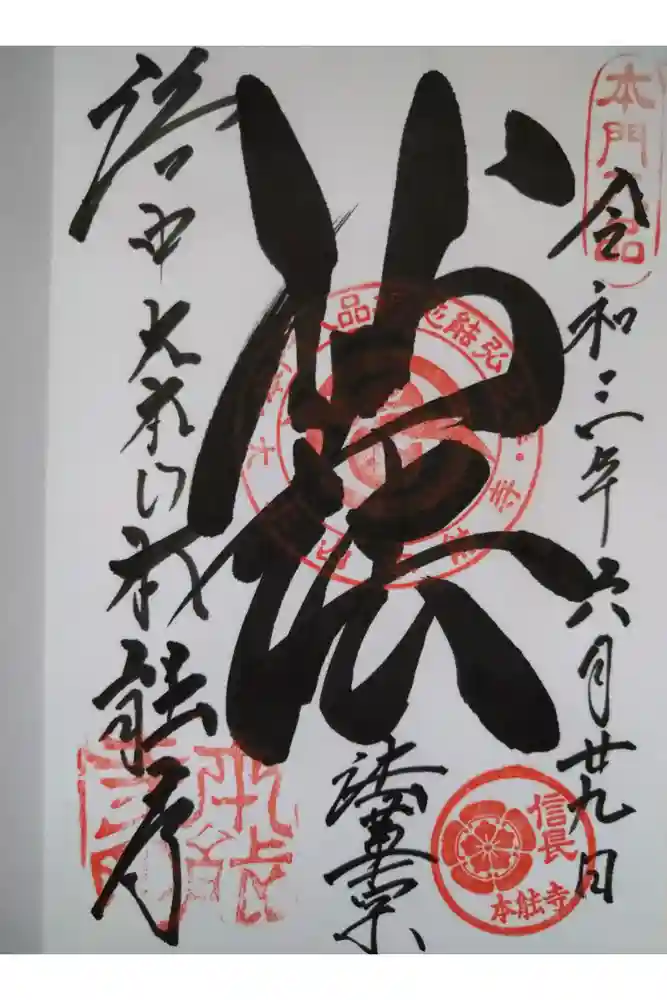 本門八品
令和三年六月廿九日
妙法
法華宗
洛中大本山本能寺
信長
本能寺